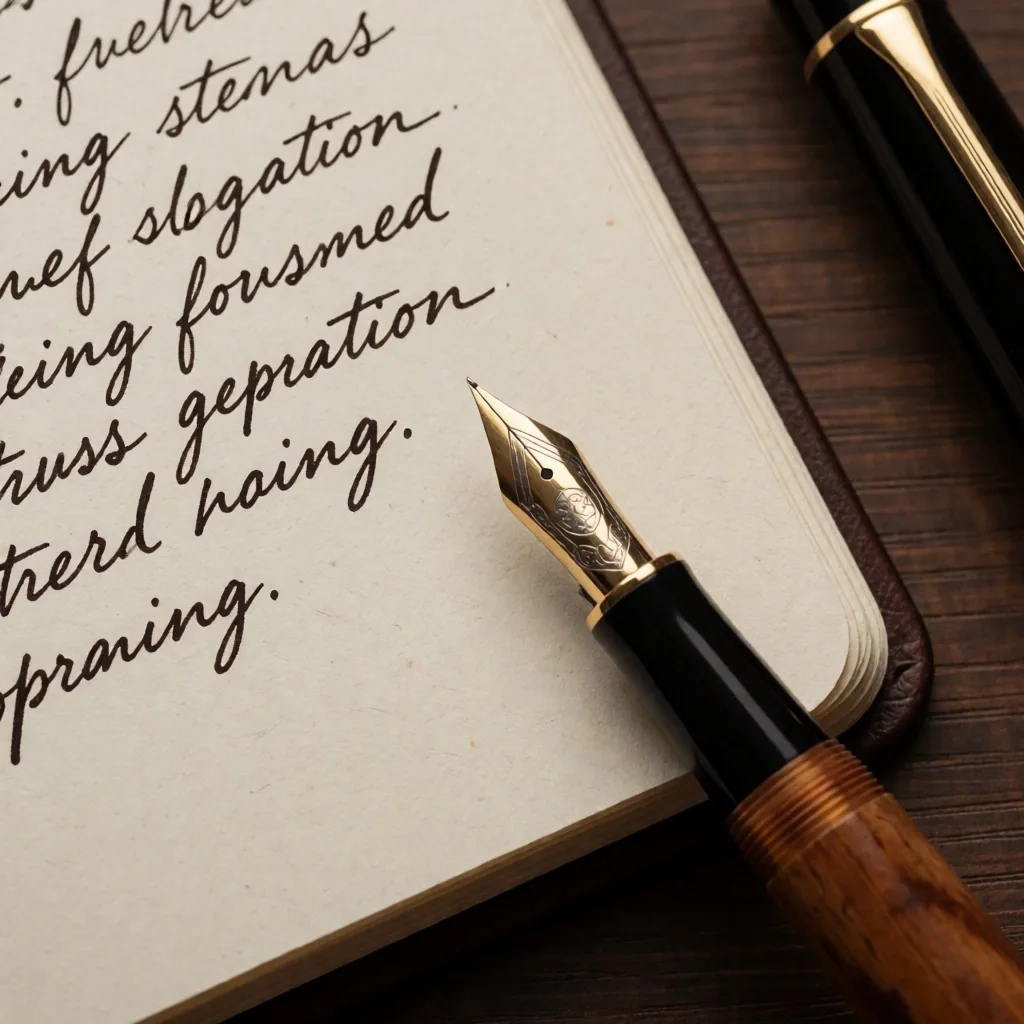 fuelre
cing stenas
uef slogation
eing fousmed
truss gepration
trerd noing.
opraning.